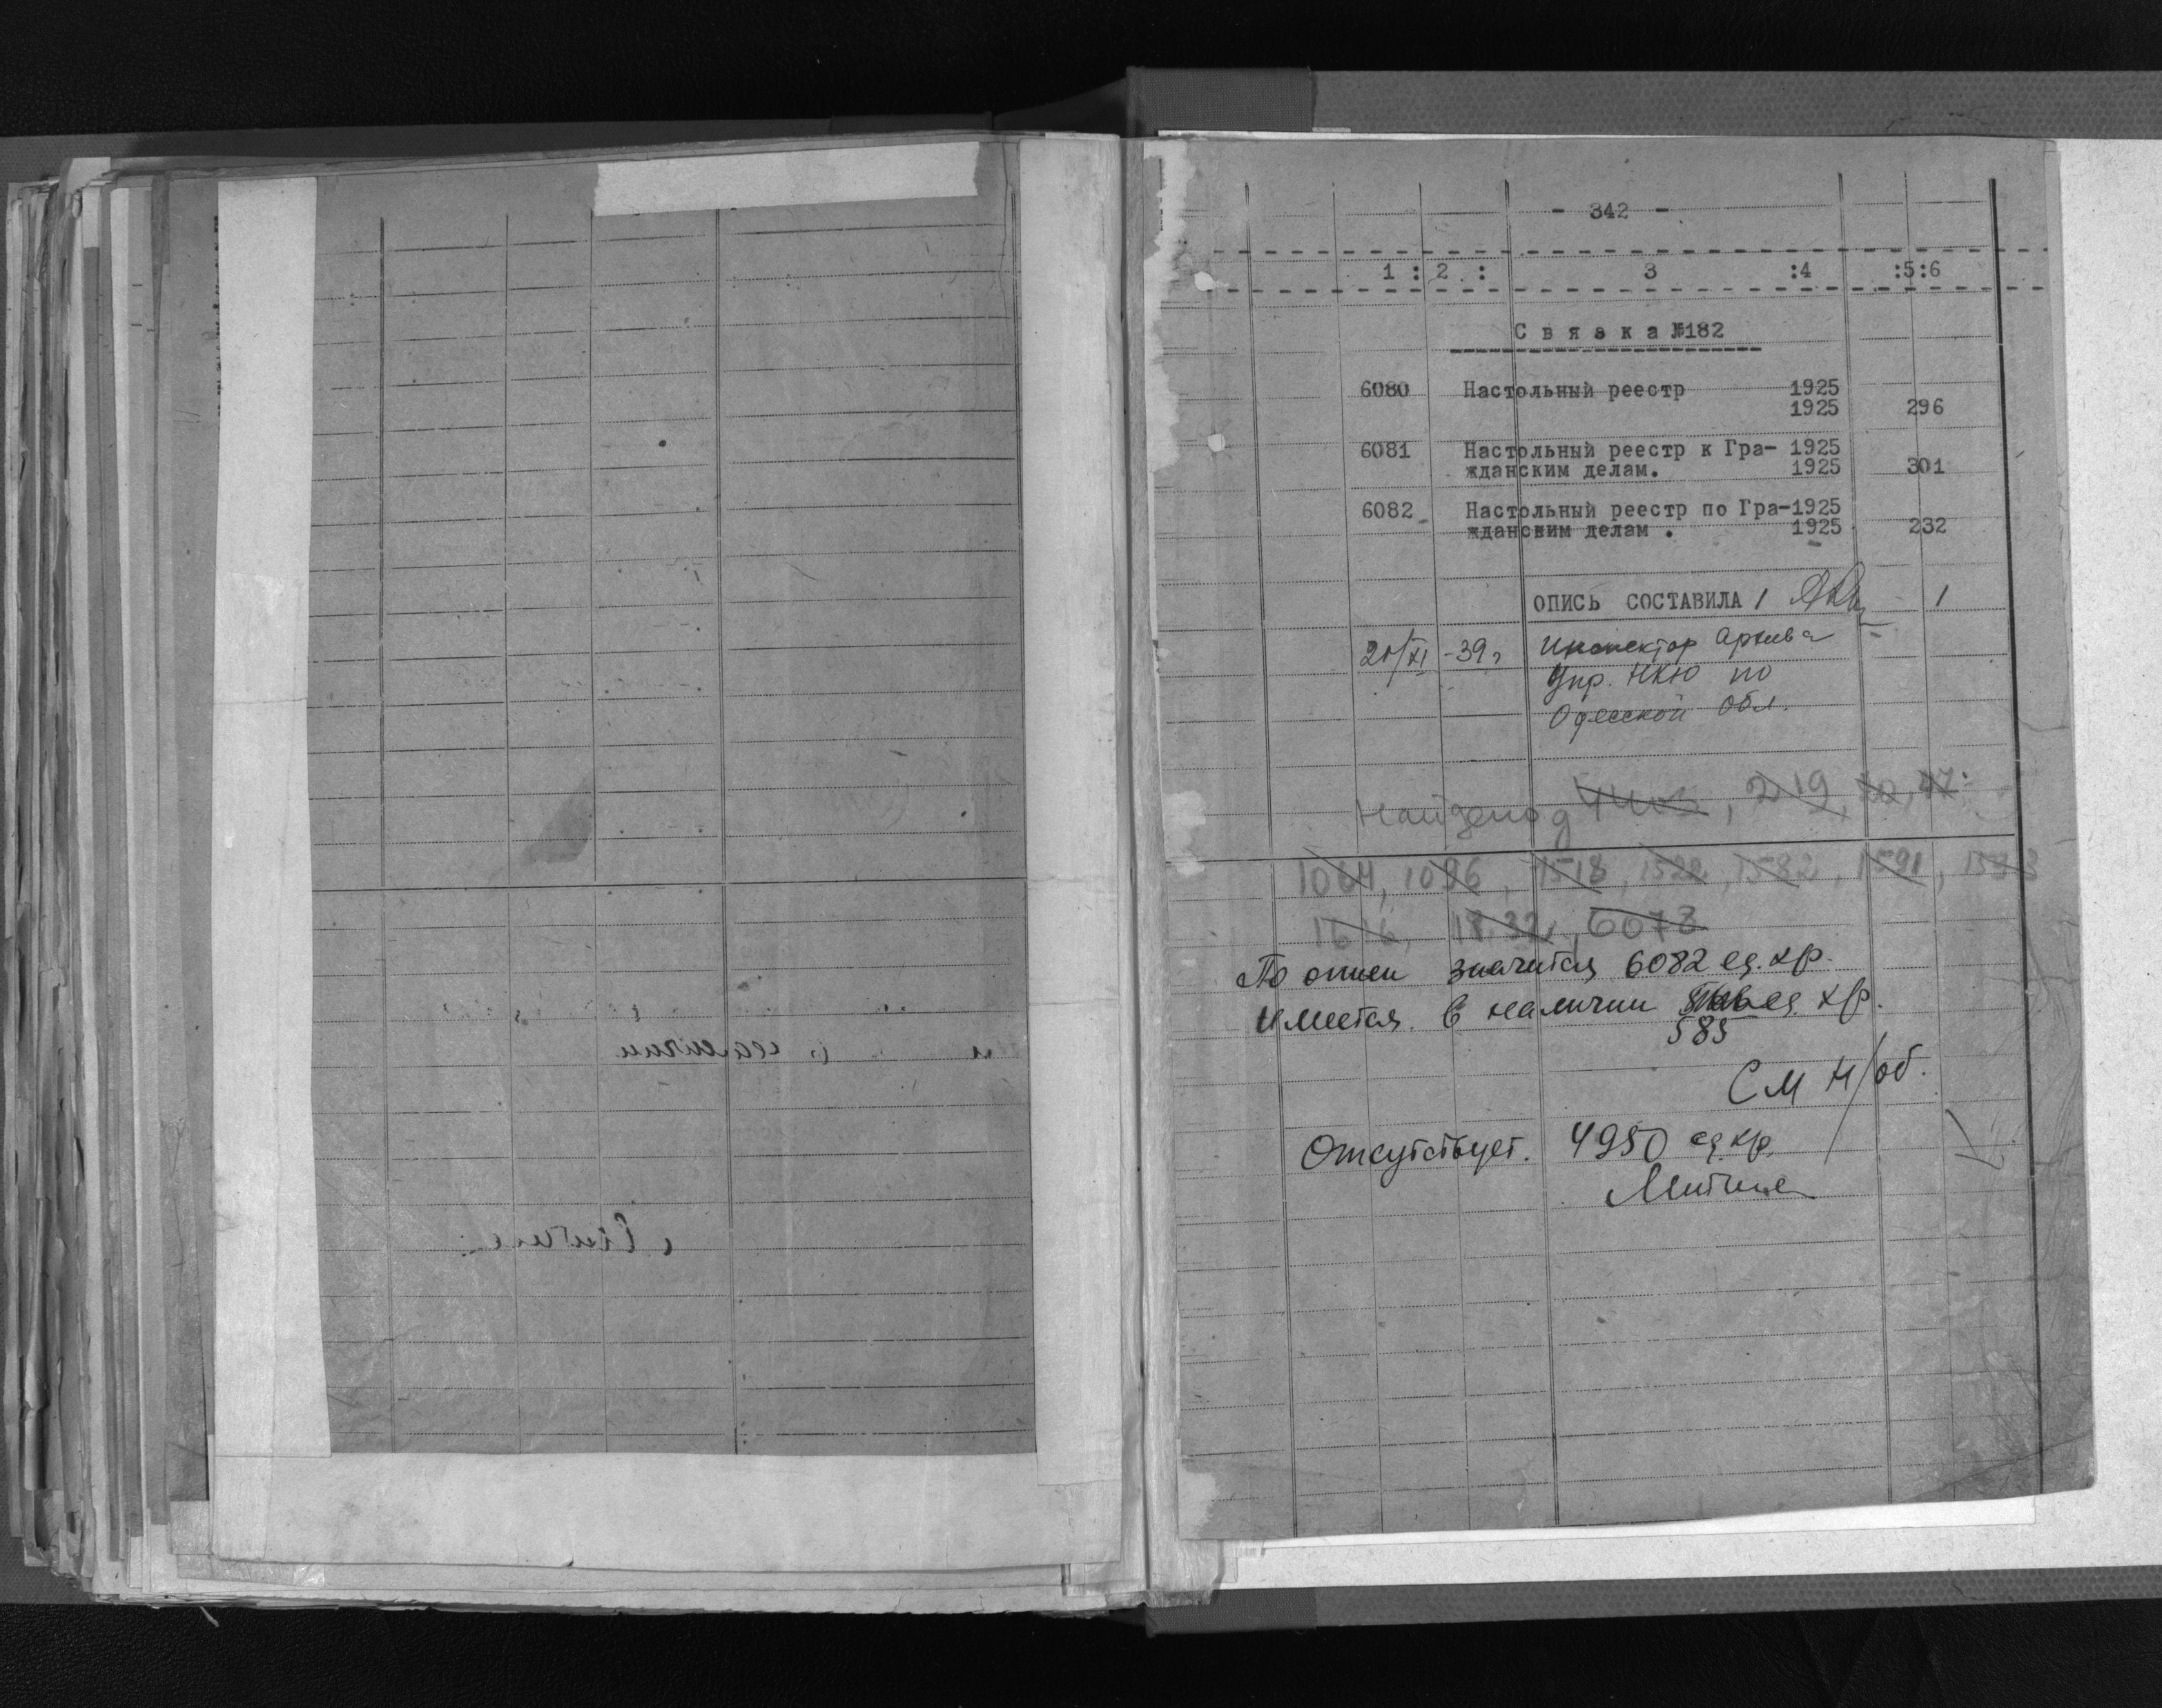 - 342 -
1 : 2 : 3 :4 :5:6
Связка №182
6080 Настольный реестр 1925
1925 296
6081 Настольный реестр к Гра- 1925
жданским делам. 1925 301
6082 Настольный реестр по Гра-1925
жданским делам . 1925 232
ОПИСЬ СОСТАВИЛА / /
20/XI -39г Инспектор Архива
Упр. НКЮ по
Одесской Обл.
Найдено д 219,
1064, 1096, 1518, 1522, 1582, 1591, 1593
1616, 1832, 6078
По описи значится 6082 ед. хр.
Имеется в наличии ед. хр.
585
См н/об.
Отсутствует. 4950 ед. хр.